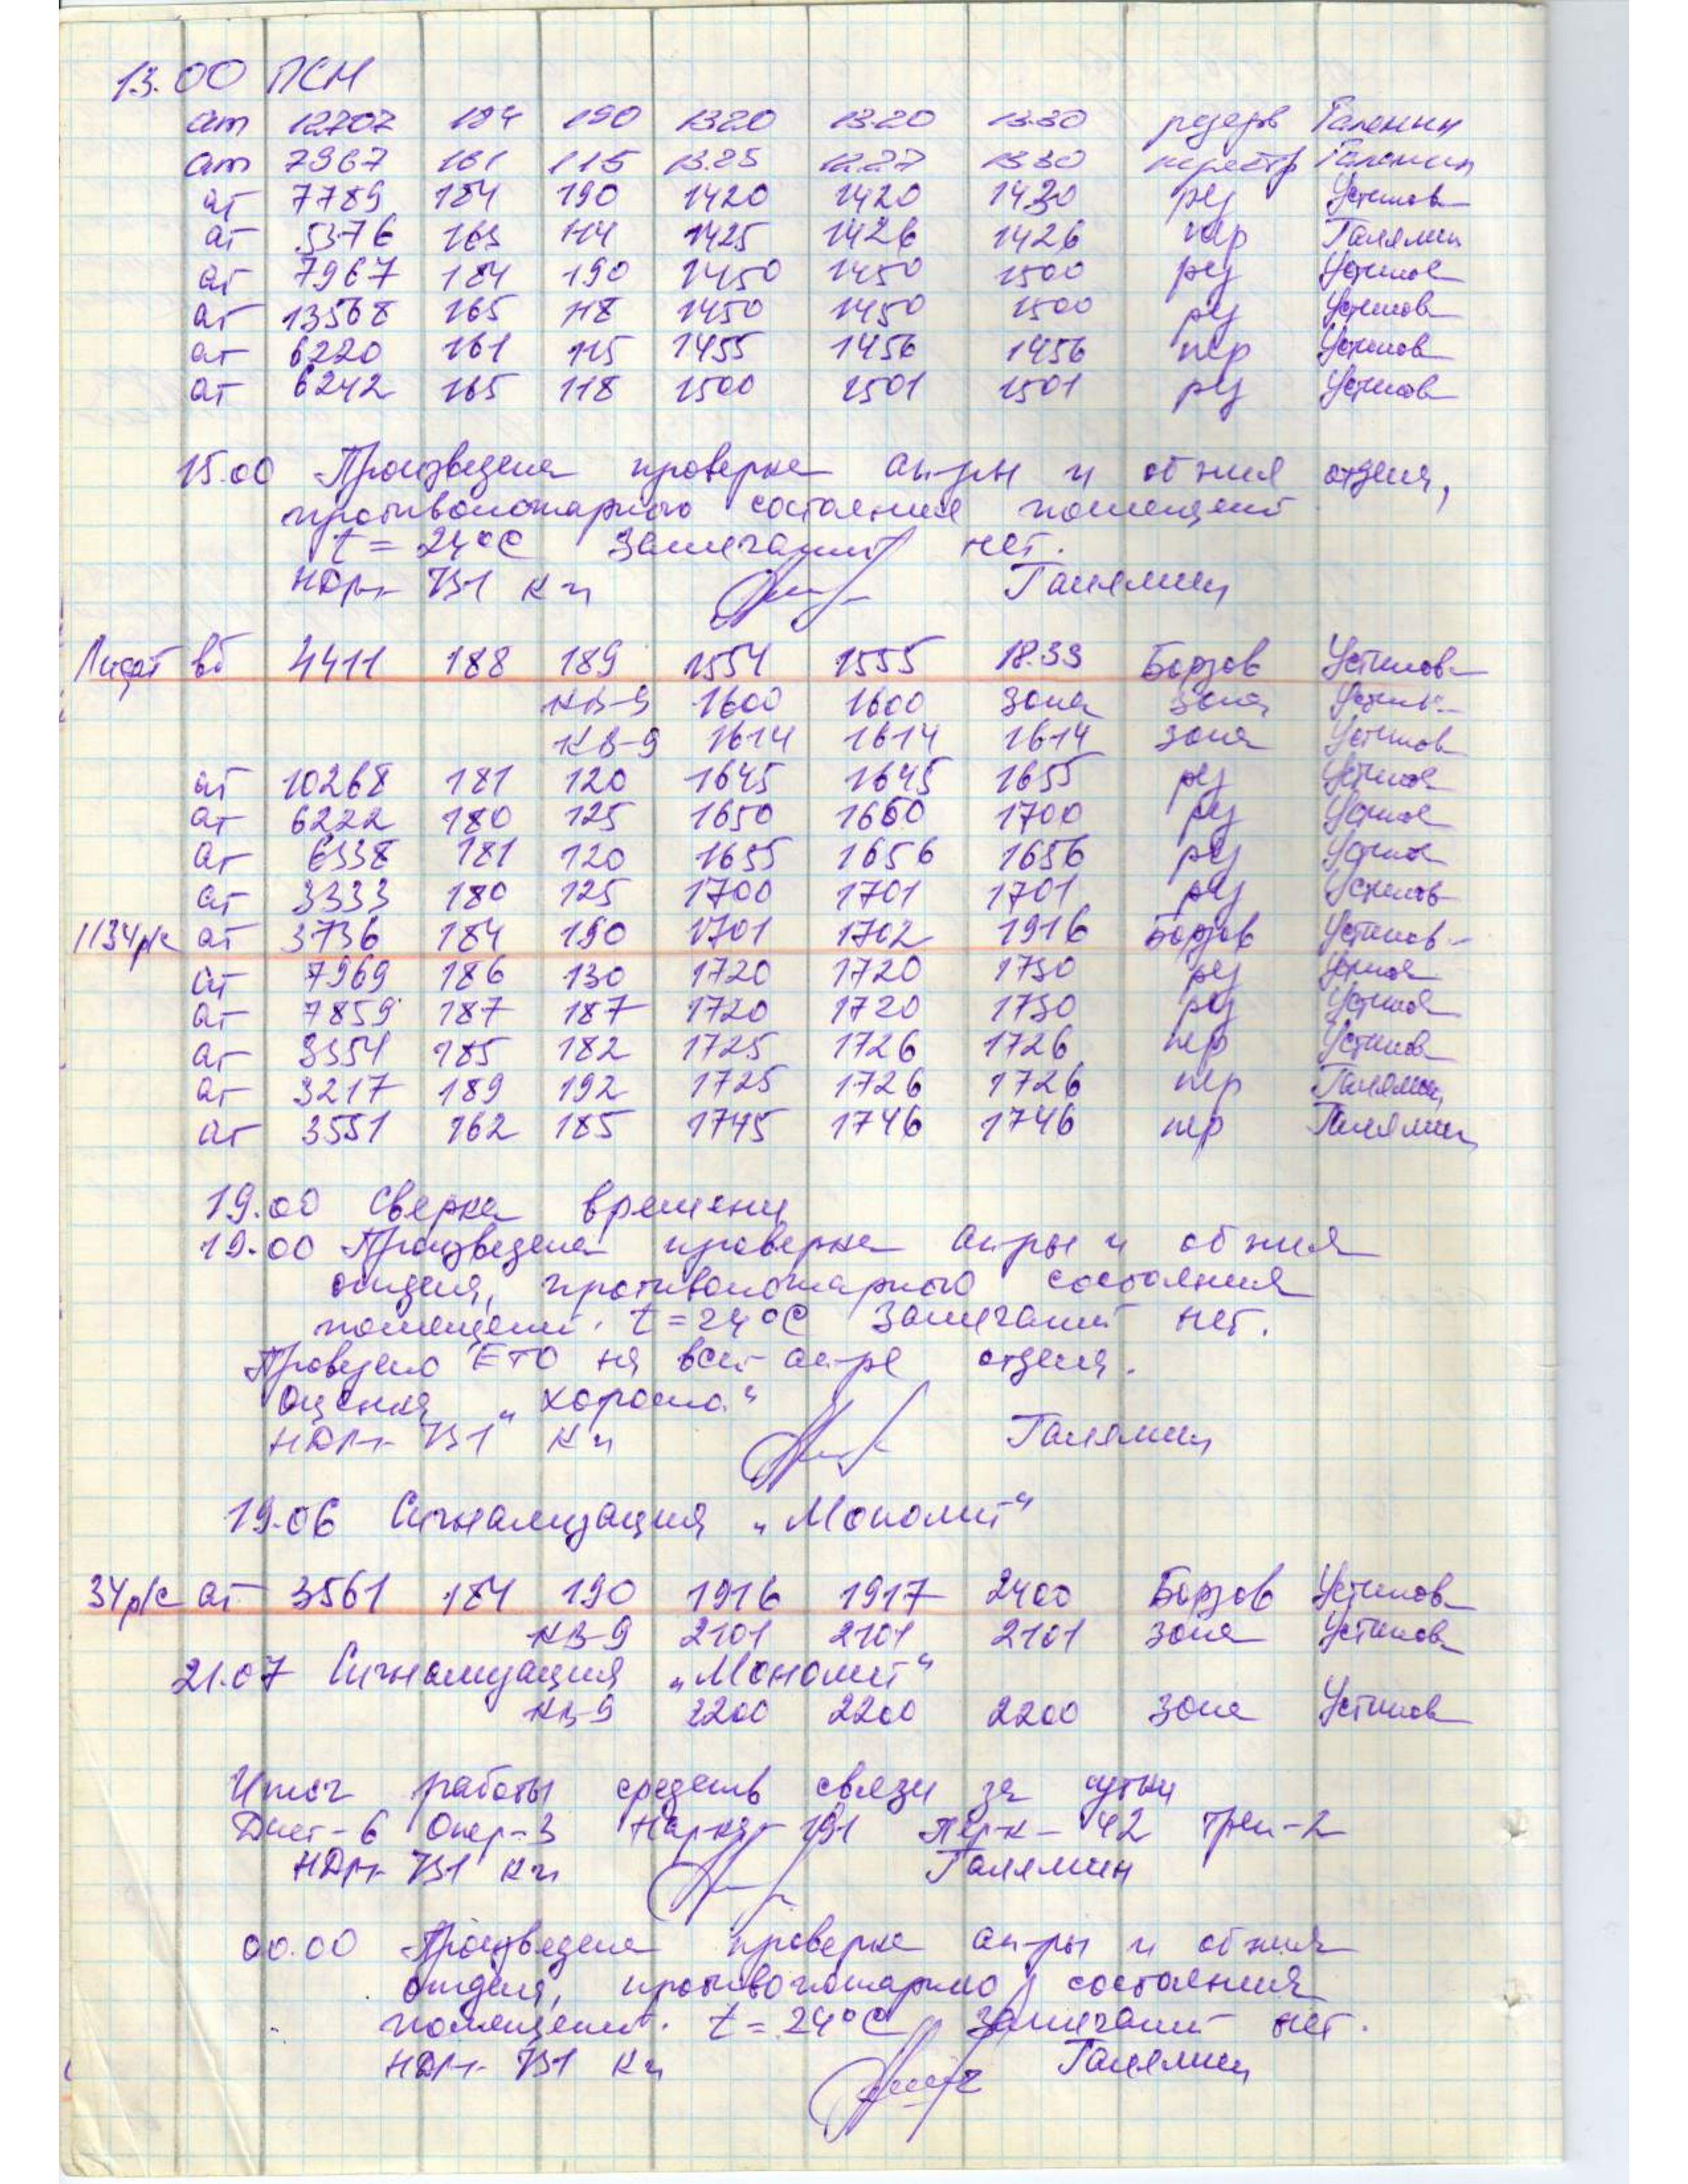 13.00 ПСН
ат 12707 184 190 1320 13.20 13.30 резерв Галямин
ат 7967 161 115 13.25 13.27 13.30 Галямин
ат 7789 184 190 1420 1420 1430 рез Устинов
ат 5376 163 114 1425 1426 1426 пер Галямин
ат 7967 184 190 1450 1450 1500 рез Устинов
ат 13568 165 118 1450 1450 1500 рез Устинов
ат 6220 161 115 1455 1456 1456 пер Устинов
ат 6242 165 118 1500 1501 1501 рез Устинов
15.00 Произведена проверка ап-ры и об-ния отд-ия,
противопожарного состояния помещений
t = 24°C Замечаний нет.
К-н Галямин
вб 4411 188 189 1554 1555 18.33 Борзов Устинов
КВ-9 1600 1600 зона зона Устинов
КВ-9 1614 1614 1614 зона Устинов
ат 10268 181 120 1645 1645 1655 рез Устинов
ат 6222 180 125 1650 1650 1700 рез Устинов
ат 6338 181 120 1655 1656 1656 рез Устинов
ат 3333 180 125 1700 1701 1701 рез Устинов
1134р/с ат 3736 184 190 1701 1702 1916 Борзов Устинов
ат 7969 186 130 1720 1720 1730 рез Устинов
ат 7859 187 187 1720 1720 1730 рез Устинов
ат 3354 185 182 1725 1726 1726 пер Устинов
ат 3217 189 192 1725 1726 1726 пер Галямин
ат 3551 162 185 1745 1746 1746 пер Галямин
19.00 Сверка времени
19.00 Произведена проверка ап-ры и об-ния
отд-ия, противопожарного состояния
помещений. t = 24°C Замечаний нет.
Проведено ЕТО на всей ап-ре отд-ия.
Оценка „хорошо“
К-н Галямин
19.06 Сигнализация „Монолит“
34р/с ат 3561 184 190 1916 1917 2400 Борзов Устинов
КВ-9 2101 2101 2101 зона Устинов
21.07 Сигнализация „Монолит“
КВ-9 2200 2200 2200 зона Устинов
Итог работы средств связи за сутки
Опер-3 191 42 Трен-2
К-н Галямин
00.00 Произведена проверка ап-ры и об-ния
отд-ия, противопожарного состояния
помещений. t = 24°C Замечаний нет.
К-н Галямин